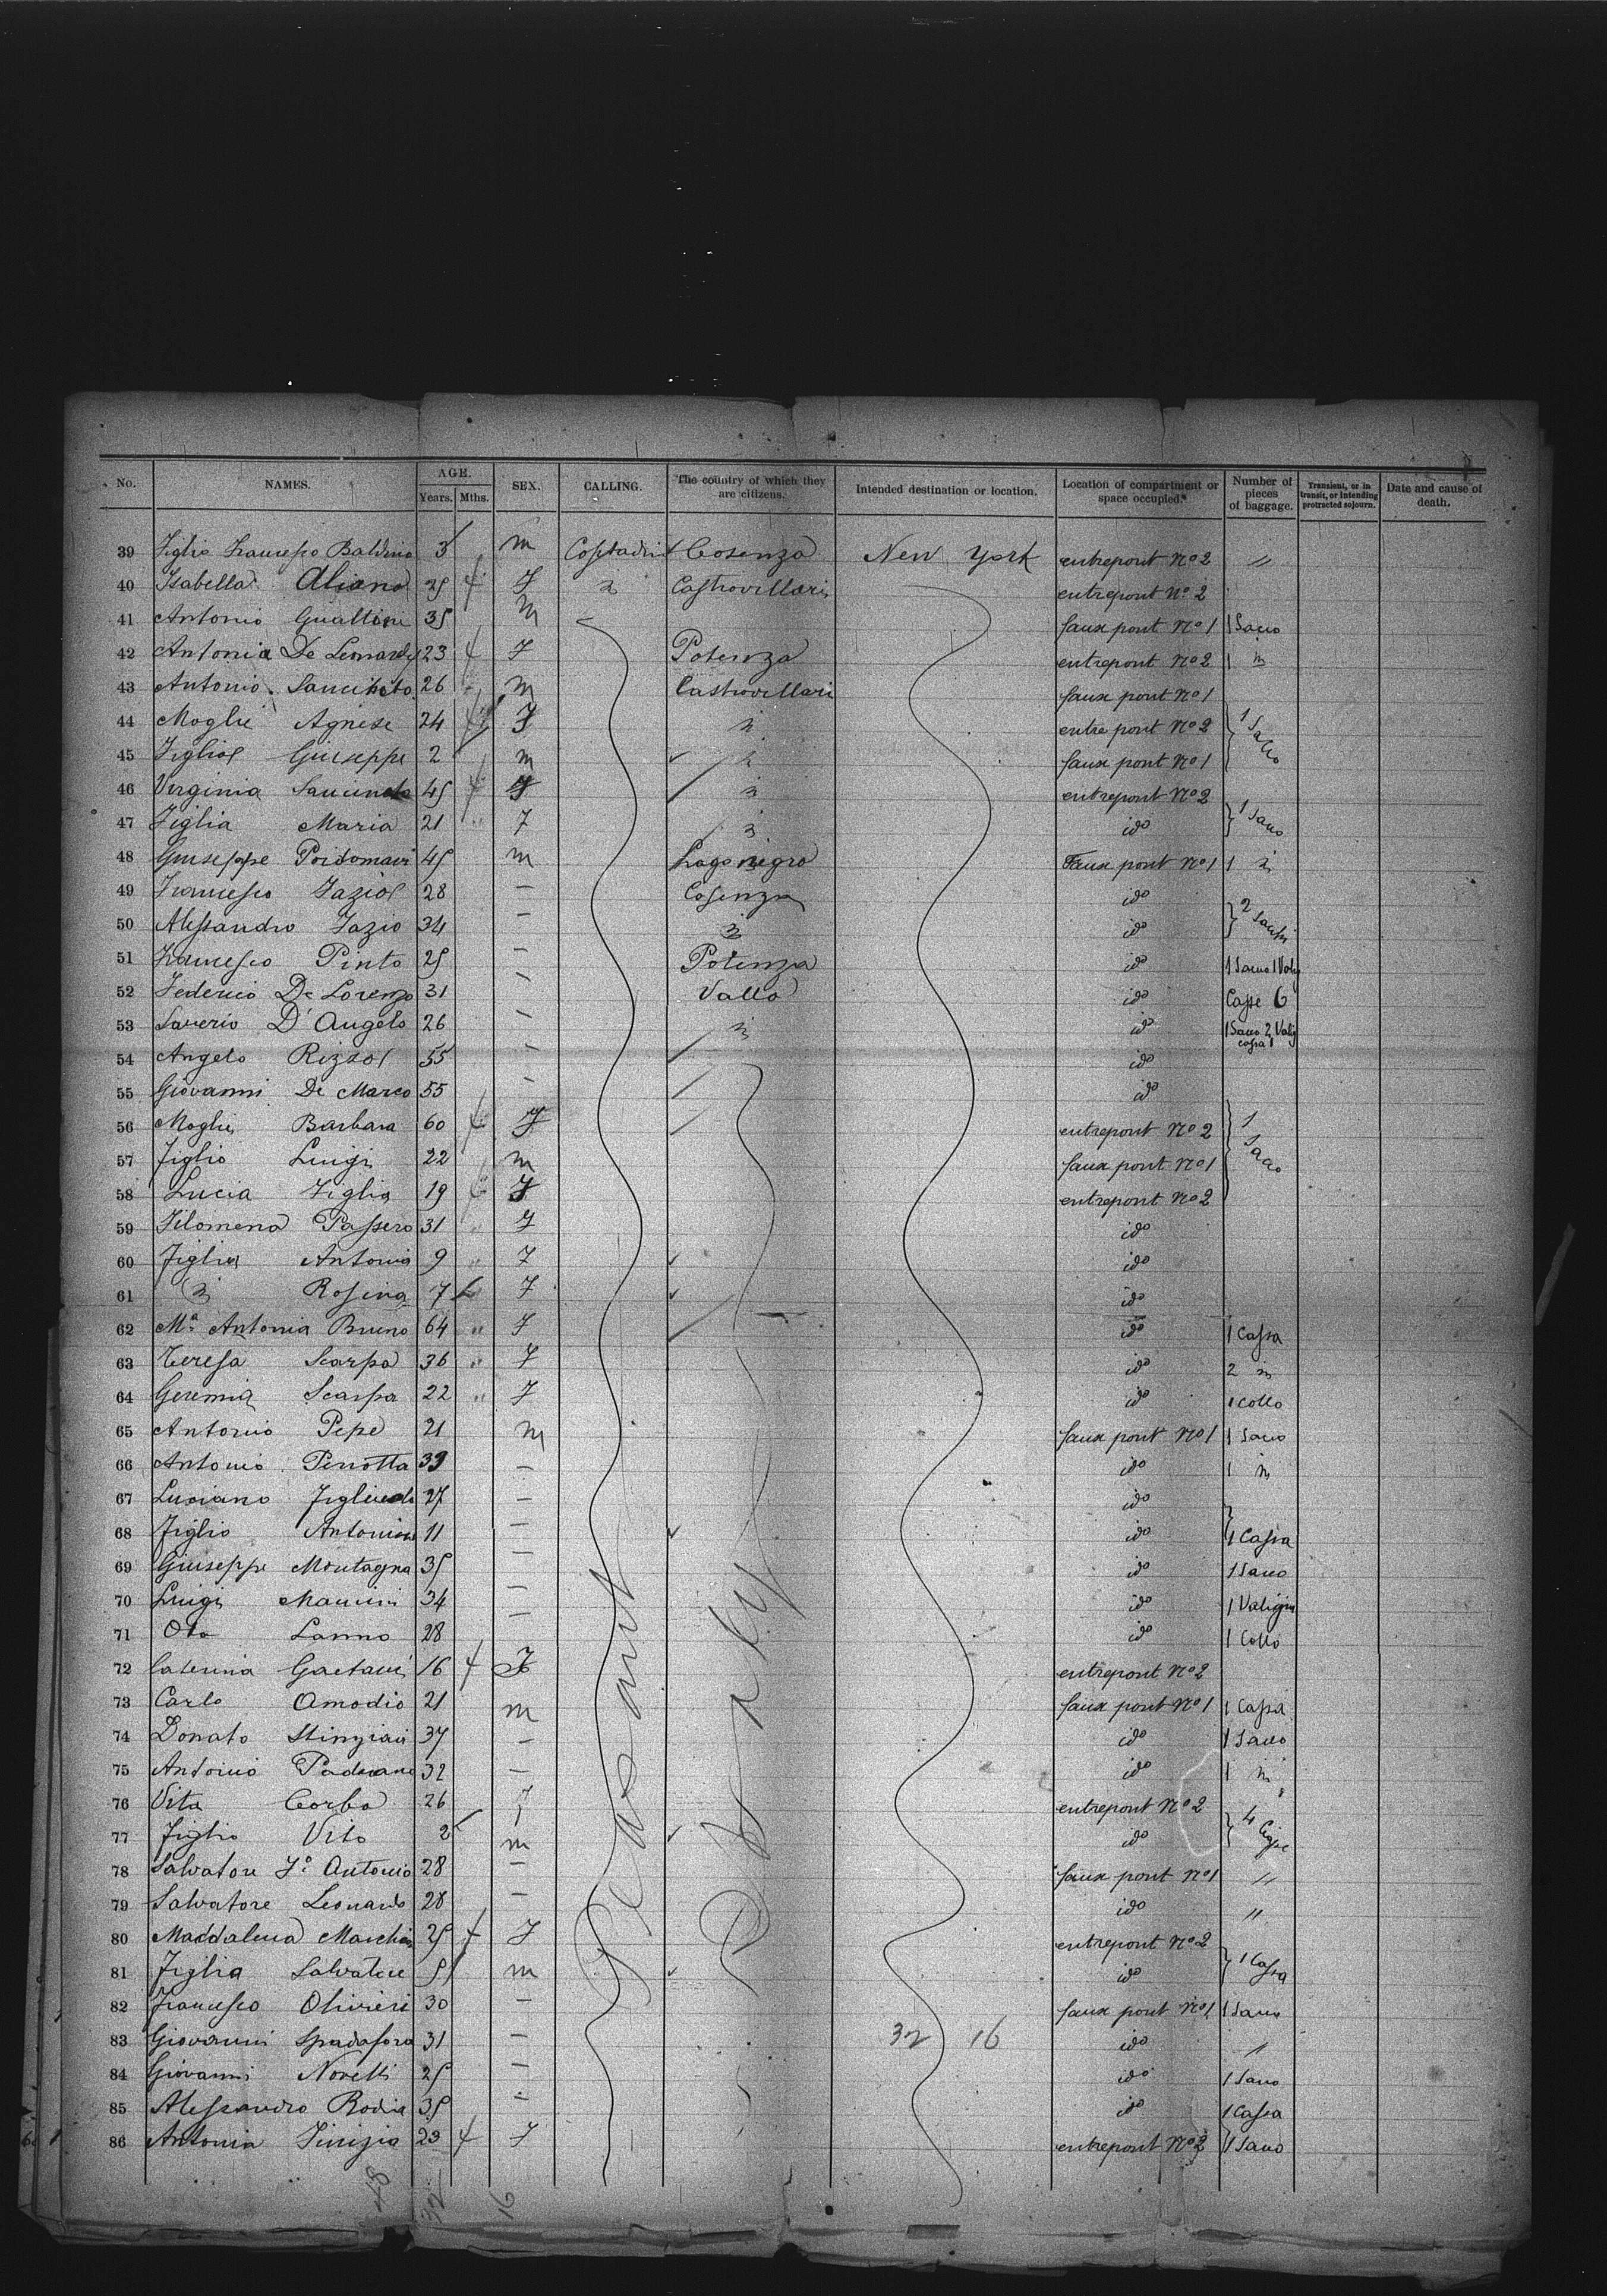 No. NAMES. AGE. Years. Mths. SEX. CALLING. The country of which they are citizens. Intended destination or location. Location of compartment or space occupied.* Number of pieces of baggage. Transient, or in transit, or intending protracted sojourn. Date and cause of death.
39 Figlio Francesco Baldino 3 m Contadini Cosenza New York entrepont No 2 "
40 Isabella Aliano 25 F Castrovillari entrepont No 2
41 Antonio 35 m faux pont No 1 1 Sacco
42 Antonia De Leonardis 23 F Potenza entrepont No 2 1
43 Antonio 26 m Castrovillari faux pont No 1
44 Moglie Agnese 24 F entrepont No 2 1 Sacco
45 Figlio Giuseppe 2 m faux pont No 1
46 Virginia 45 F entrepont No 2
47 Figlia Maria 21 F ido 1 Sacco
48 Giuseppe 45 m Lagonegro Faux pont No 1 1
49 Francesco Fazio 28 — Cosenza ido
50 Alessandro Fazio 34 — ido 2 Sacchi
51 Francesco Pinto 25 — Potenza ido 1 Sacco 1 Valig
52 Federico De Lorenzo 31 — Vallo ido Casse 6
53 Saverio D'Angelo 26 — ido 1 Sacco 2 Valig cassa 1
54 Angelo Rizzo 55 — ido
55 Giovanni De Marco 55 — ido
56 Moglie Barbara 60 F entrepont No 2 1 Sacco
57 Figlio Luigi 22 m faux pont No 1
58 Lucia Figlia 19 F entrepont No 2
59 Filomena Passero 31 " F ido
60 Figlia Antonia 9 " F ido
61 Rosina 7 F ido
62 Ma Antonia Bruno 64 " F ido 1 Cassa
63 Teresa Scarpa 36 " F ido 2
64 Geremia Scarpa 22 " F ido 1 Collo
65 Antonio Pepe 21 m faux pont No 1 1 Sacco
66 Antonio Perrotta 39 — ido 1
67 Luciano 27 — ido
68 Figlio Antonino 11 — ido 1 Cassa
69 Giuseppe Montagna 35 — ido 1 Sacco
70 Luigi Mancini 34 — ido 1 Valigia
71 Lanno 28 — ido 1 Collo
72 Caterina Gaetani 16 F entrepont No 2
73 Carlo Amodio 21 m faux pont No 1 1 Cassa
74 Donato 37 — ido 1 Sacco
75 Antonio Padovano 32 — ido 1
76 Vita Corbo 26 F entrepont No 2
77 Figlio Vito 2 m ido 4
78 Salvatore Fo Antonio 28 — faux pont No 1 "
79 Salvatore Leonardo 28 — ido "
80 Maddalena 25 F entrepont No 2
81 Figlia Salvatore 5 m ido 1 Cassa
82 Francesco Olivieri 30 — faux pont No 1 1 Sacco
83 Giovanni Spadafora 31 — 32 16 ido "
84 Giovanni Novelli 25 — ido 1 Sacco
85 Alessandro Rodia 35 — ido 1 Cassa
86 Antonia 23 F entrepont No 2 1 Sacco
Peasant
Italy
48 32 16